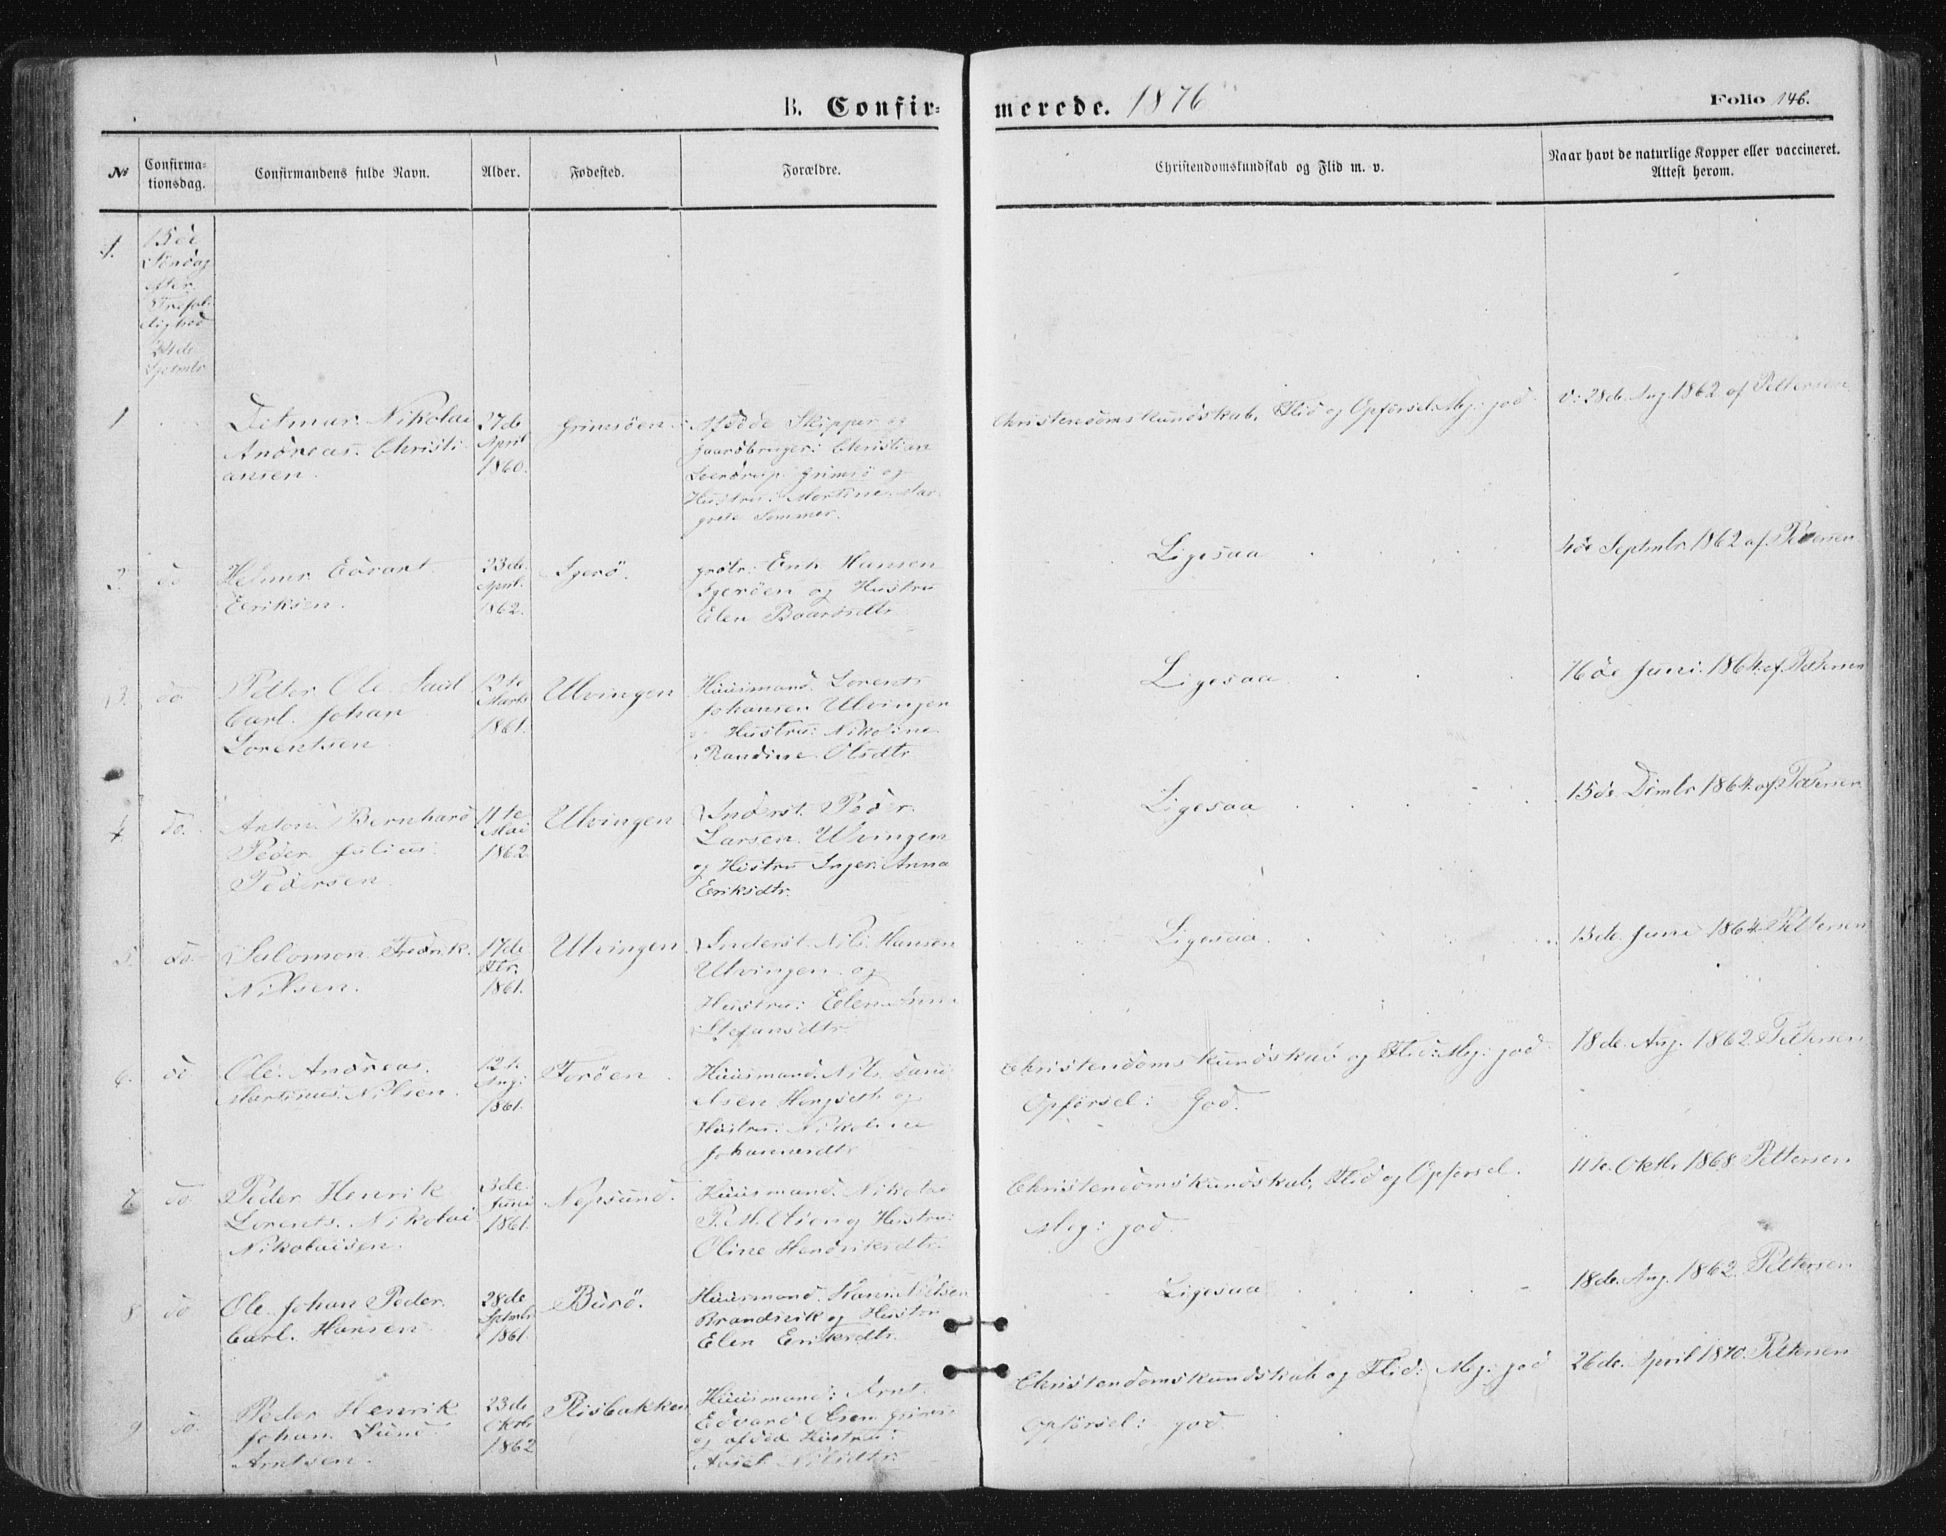 B. Confirmerede. 1876
Folio 146.
№
Confirmationsdag.
Confirmandens fulde Navn.
Alder.
Fødested.
Forældre.
Christendomskundskab og Flid m. v.
Naar havt de naturlige Kopper eller vaccineret.
Attest herom.
1.
15de
Søndag
efter
Trefol-
dighed
24de
Septmbr
1
Ditmar Nikolai
Andreas Christi-
ansen.
27de
April
1860.
Grimsøen.
Afdøde Skipper og
Gaardbruger: Christian
Grimsø og
Hustru: Martine Mar-
grete Sommer.
Christendomskundskab, Flid og Opførsel: Meg: god
v: 28de Aug 1862 af Pettersen
2. do
Helmer Edvart
Eeriksen.
23de
April
1862.
Igerø.
Grdbr: Erik Hansen
Igerøen og Hustru
Elen Baardsdtr
Ligesaa
4de Septmbr. 1862 af. Petersen
3. do
Petter Ole Paul
Carl Johan
Lorentsen
12te
Marts
1861.
Ulvingen
Huusmand. Lorents
Johansen Ulvingen
Hustru: Nikoline
Randine Olsdtr.
Ligesaa
16de Juni. 1864. af. Petersen
4. do.
Anton Bernhard
Peder Julius
Pedersen
11te
Mai
1862
Ulvingen
Inderst. Peder
Larsen. Ulvingen
og Hustru Inger: Anna
Eriksdtr.
Ligesaa
15de Dcmbr 1864. af Petersen
5. do.
Salomon Fredrik
Nilsen.
17de
Fbr.
1861.
Ulvingen
Inderst. Nils Hansen
Ulvingen og
Hustru: Elen Anna
Stefansdtr
Ligesaa.
13de Juni 1864 Pettersen
6. do
Ole. Andreas.
Martinus. Nilsen.
12te
Aug:
1861.
Forøen
Huusmand. Nils
Hongseth og
Hustru: Nikoline
Johannesdtr
Christendomskundskab og Flid: Meg: god
Opførsel: God.
18de Aug. 1862 Pettersen
7. do
Peder Henrik
Lorents. Nikolai
Nikolaisen.
3de
Juni
1861.
Nepsund.
Huusmand. Nikolai
P. M. Olsen og Hustru:
Oline Hendriksdtr.
Christendomskundskab, Flid og Opførsel.
Meg: god.
11te. Oktbr 1868. Pettersen
8 do
Ole Johan Peder
Carl. Hansen
28de
Sptmbr
1861
Burø.
Huusmand. Hans Nilsen
Brandsvik og Hustru
Elen Eriksdtr.
Ligesaa
18de. Aug. 1862. Pettersen
9 do.
Peder Henrik
Johan. Lund
Arntsen.
23de
Oktbr
1862
Risbakken
Huusmand: Arnt.
Edvard Olsen Grimsø
og afdød Hustru:
Nilsdtr
Christendomskundskab og Flid: Meg: god
Opførsel: god
26de. April 1870. Pettersen